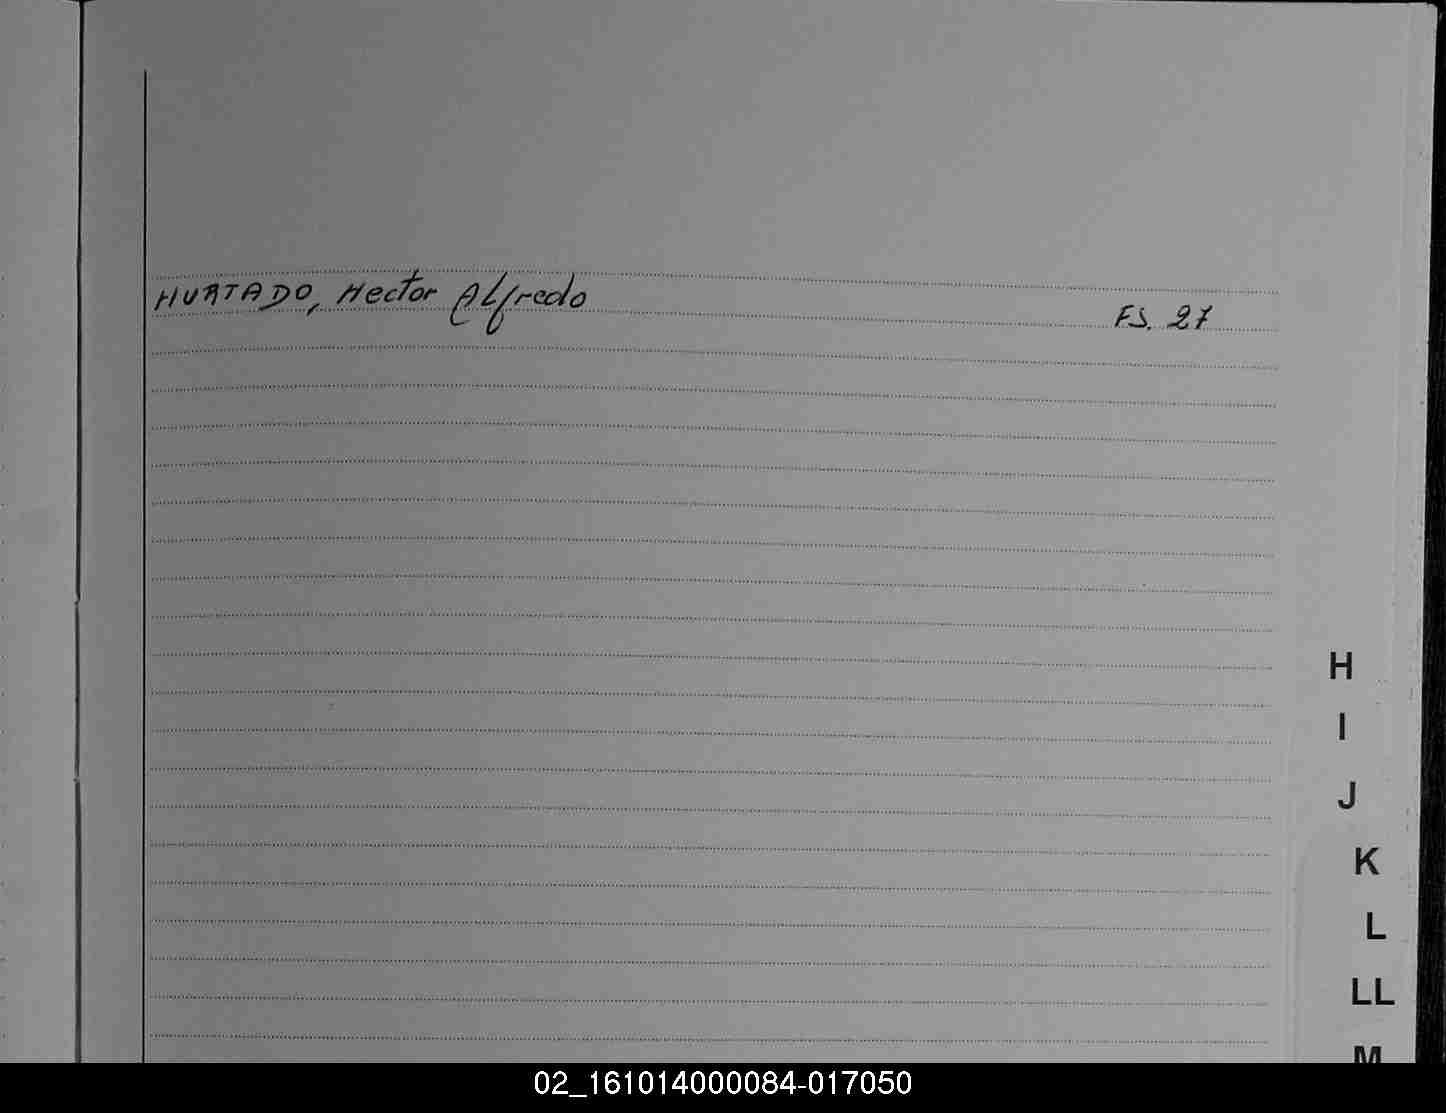 HURTADO, Hector Alfredo FS. 27
H
I
J
K
L
LL
M
02_161014000084-017050